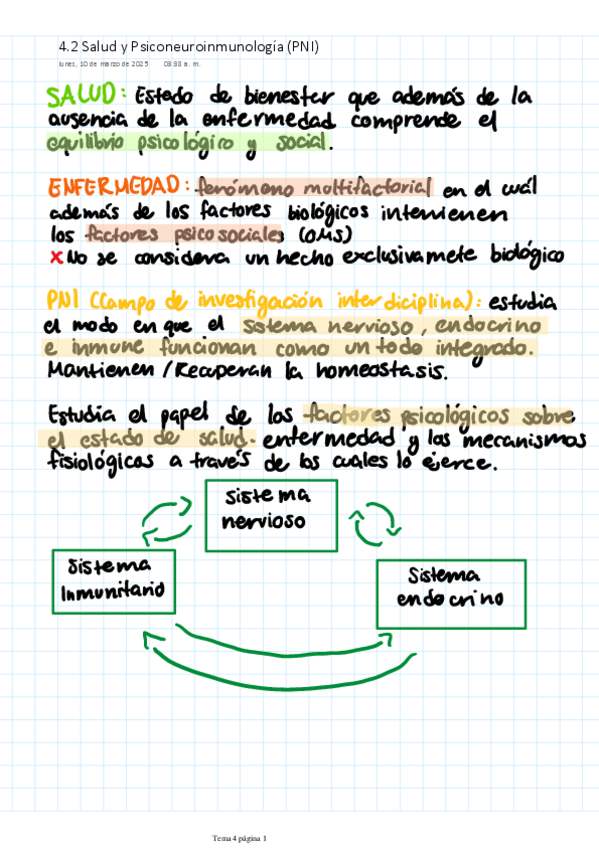 4.2 Salud y Psiconeuroinmunología (PNI)
lunes, 10 de marzo de 2025 08:38 a. m.
SALUD: Estado de bienestar que además de la
ausencia de la enfermedad comprende el
equilibrio psicológico y social.
ENFERMEDAD: fenómeno multifactorial en el cuál
además de los factores biológicos intervienen
los factores psicosociales (OMS)
x No se considera un hecho exclusivamete biológico
PNI (Campo de investigación interdiciplina): estudia
el modo en que el sistema nervioso, endocrino
e inmune funcionan como un todo integrado.
Mantienen / Recuperan la homeostasis.
Estudia el papel de los factores psicológicos sobre
el estado de salud. enfermedad y los mecanismos
fisiológicos a través de los cuales lo ejerce.
Sistema
nervioso
Sistema
Inmunitario
Sistema
endocrino
Tema 4 página 1